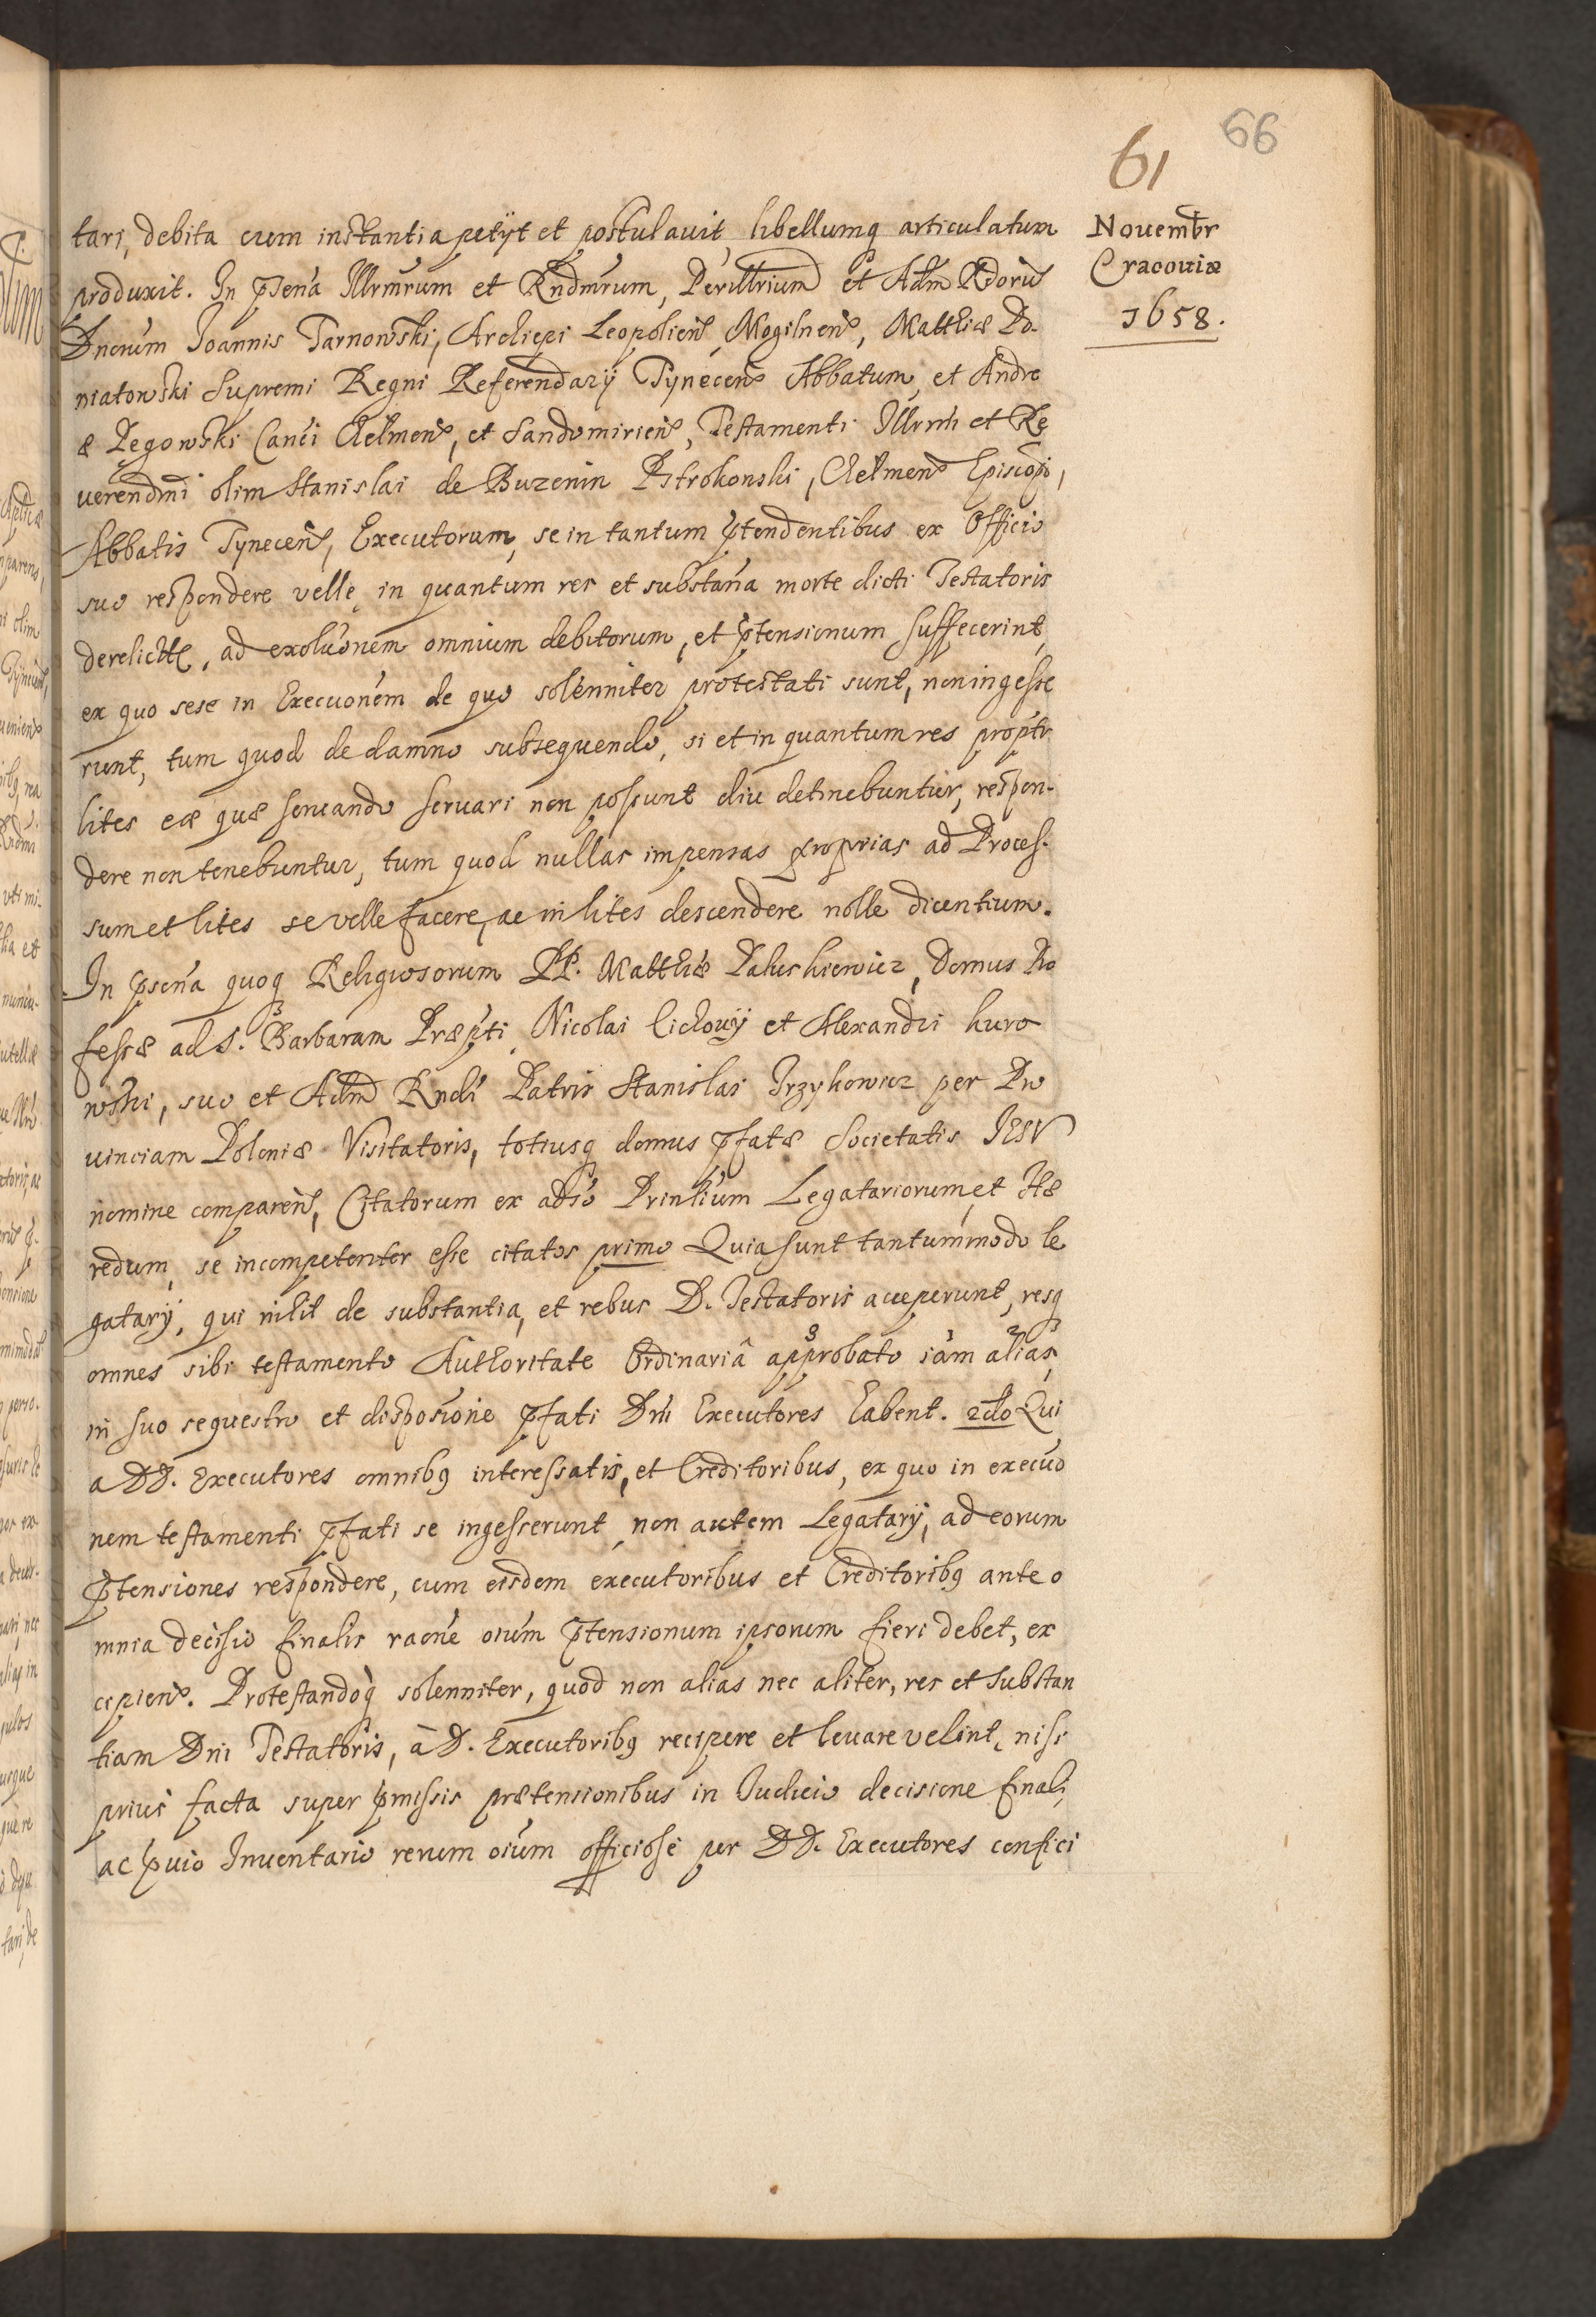 66
61
Nouembr
Cracouiæ
1658.
tari, debita cum instantia petÿt et postulauit, libellumq articulatum
produxit. In pñtia Illrmrum et Rndmrum, Perillrium et Adm Rdorum
Dnorum Joannis Tarnowski, Archiepi Leopolien, Mogilnen, Matthiæ Po-
niatowski Supremi Regni Referendarÿ Tynecen Abbatum, et Andre
æ Pęgowski Canci Chelmen, et Sandomirien, Testamenti Illrmi et Re
uerendmi olim Stanislai de Buzenin Pstrokonski, Chelmen Episcopi,
Abbatis Tynecen, Executorum, se in tantum ptendentibus ex Officio
suo respondere velle, in quantum res et substana morte dicti Testatoris
derelictæ, ad exoluonem omnium debitorum, et ptensionum suffecerint,
ex quo sese in Execuonem de quo solenniter protestati sunt, non ingesse
runt, tum quod de damno subsequendo, si et in quantum res proptr
lites eæ quæ seruando seruari non possunt diu detinebuntur, respon-
dere non tenebuntur, tum quod nullas impensas proprias ad Proces-
sum et lites se velle facere, ac in lites descendere nolle dicentium.
In psena quoq Religiosorum PP. Matthiæ Paluskiewicz, Domus Pro
fessæ ad S. Barbaram Præpti, Nicolai Cichouÿ et Alexandri Kuro
wski, suo et Adm Rndi Patris Stanislai Jrzykowicz per Pro
uinciam Poloniæ Visitatoris, totiusq domus pfatæ Societatis IESV
nomine comparen, Citatorum ex adso Prinlium Legatariorum, et Hæ
redum, se incompetenter esse citatos primo Quia sunt tantummodo le
gatarÿ, qui nihil de substantia, et rebus D. Testatoris acceperunt, resq
omnes sibi testamento Authoritate Ordinariâ approbato iam alias,
in suo sequestro et disposione pfati Dni Executores habent. 2do Qui
a DD. Executores omnibq interessatis, et Creditoribus, ex quo in execuo
nem testamenti pfati se ingesserunt, non autem Legatarÿ, ad eorum
ptensiones respondere, cum eisdem executoribus et Creditoribq ante o
mnia decisio finalis raone oium ptensionum ipsorum fieri debet, ex
cipien. Protestandoq solenniter, quod non alias nec aliter, res et substan
tiam Dni Testatoris, à D. Executoribq recipere et leuare velint, nisi
prius facta super pmissis prætensionibus in Iudicio decisione finali,
ac puio Inuentario rerum oium officiose per DD. Executores confici